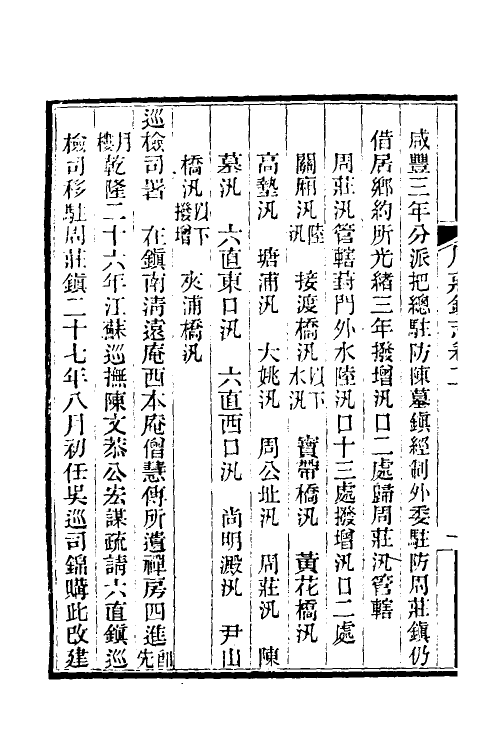 咸豐三年分派把總駐防陳墓鎮經制外委駐防周莊鎮仍
借居鄉約所光緒三年撥增汛口二處歸周莊汛管轄
周莊汛管轄葑門外水陸汛口十三處撥增汛口二處
關廂汛陸汛 接渡橋汛以下水汛 寶帶橋汛 黃花橋汛
高墊汛 塘浦汛 大姚汛 周公坵汛 周莊汛 陳
墓汛 六直東口汛 六直西口汛 尚明澱汛 尹山
橋汛以下撥增 夾浦橋汛
巡檢司署 在鎮南清遠庵西本庵僧慧傳所遺禪房四進先
樓乾隆二十六年江蘇巡撫陳文恭公宏謀疏請六直鎮巡
檢司移駐周莊鎮二十七年八月初任吳巡司錦購此改建